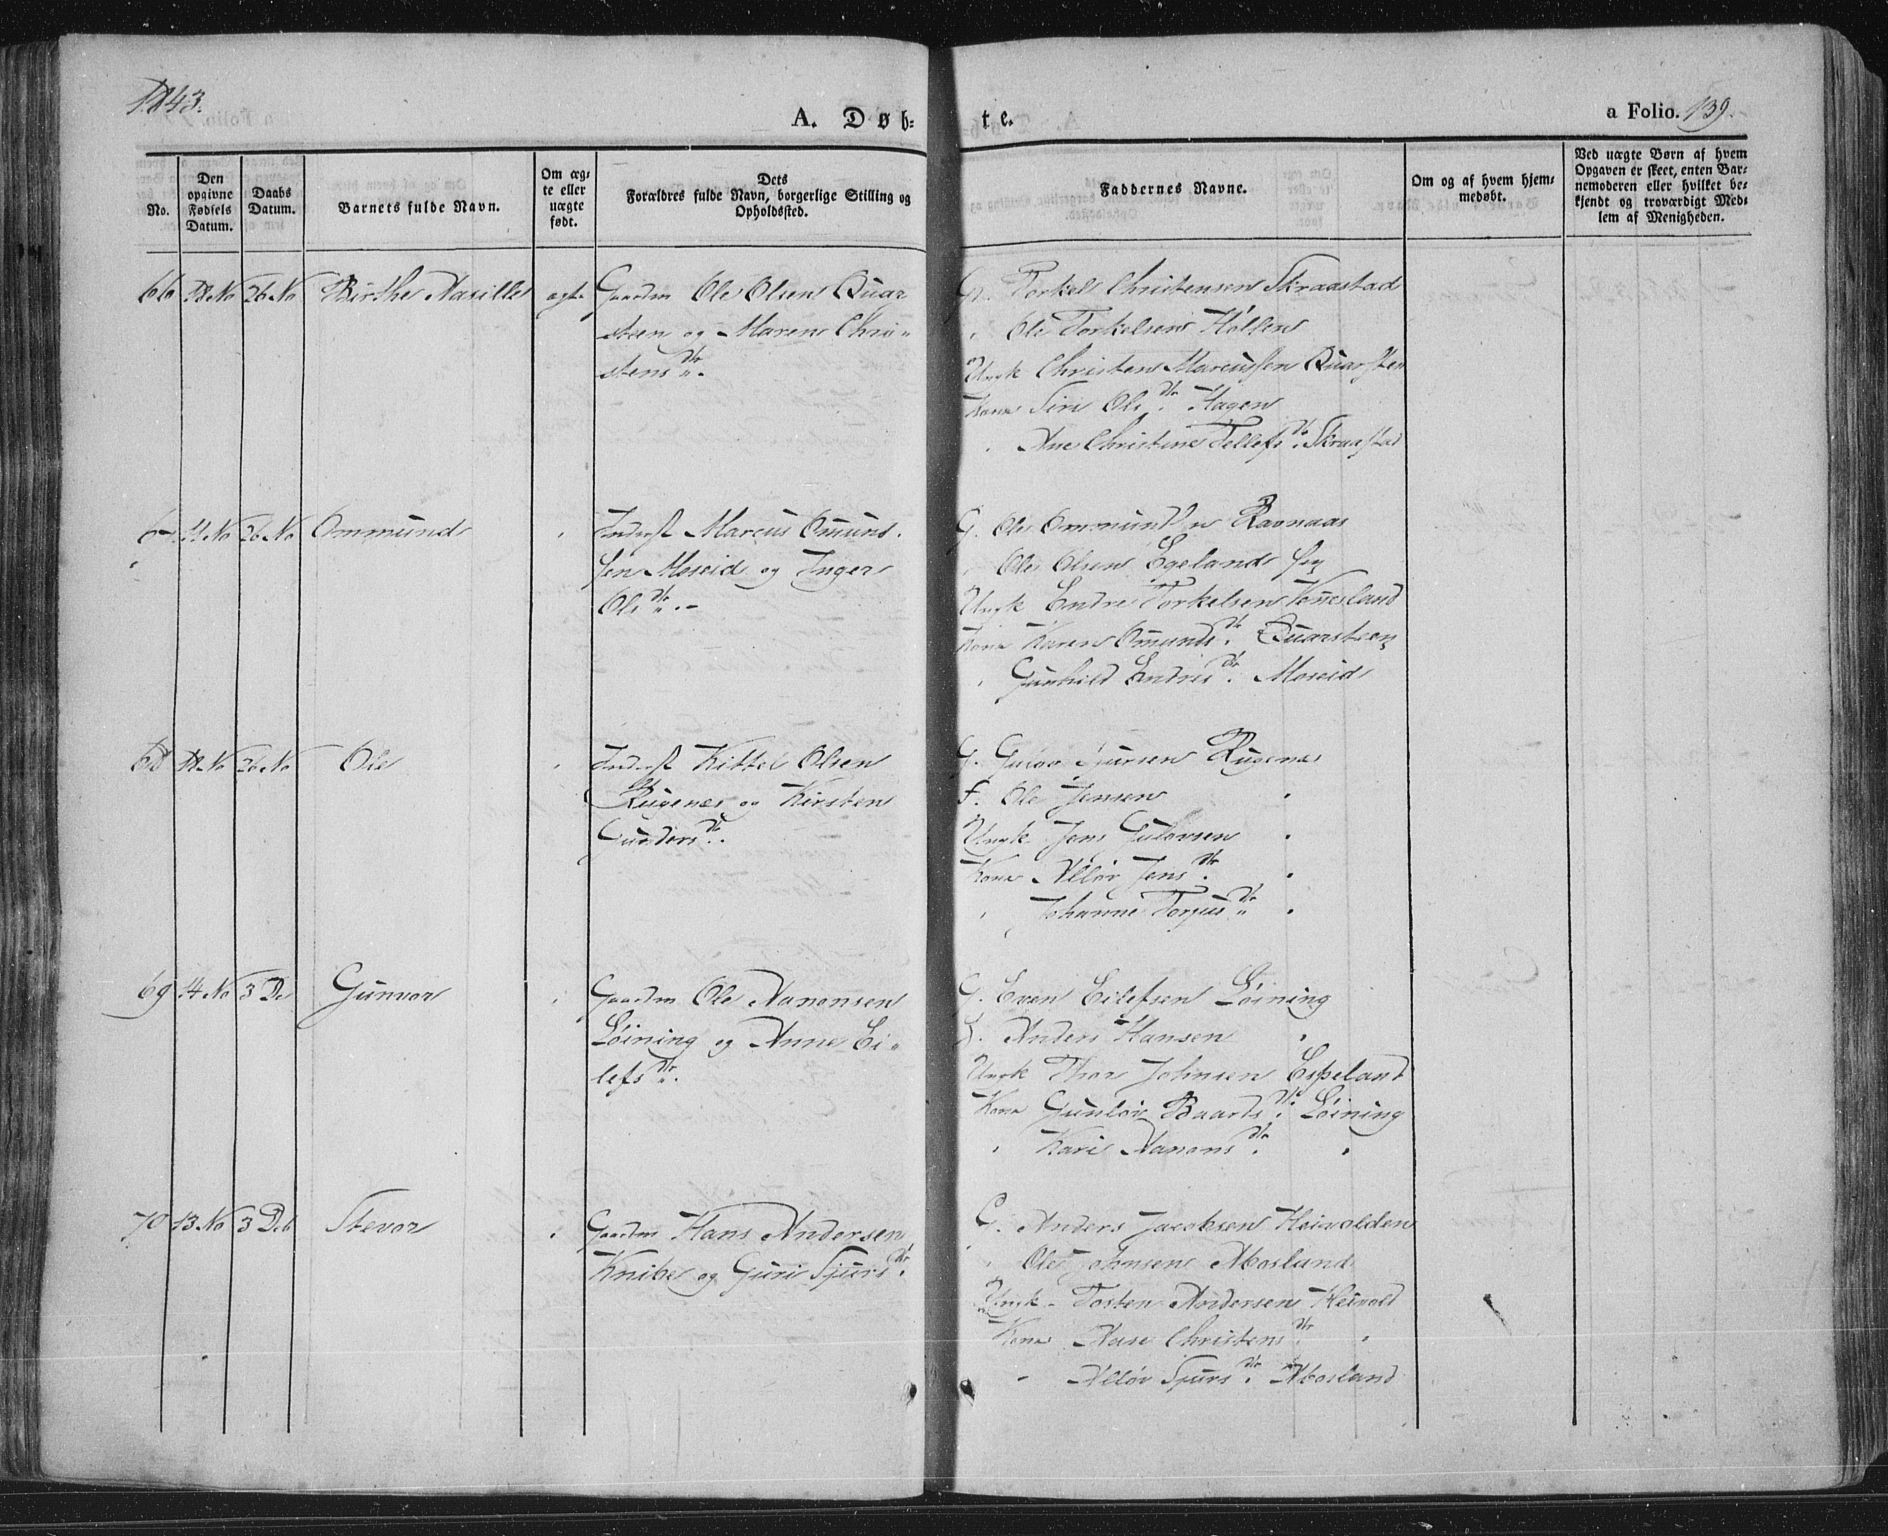 1843.
A. Døb-
te.
a Folio. 139.
No.
Den opgivne Fødsels Datum.
Daabs Datum.
Barnets fulde Navn.
Om ægte eller uægte født.
Dets Forældres fulde Navn, borgerlige Stilling og Opholdssted.
Faddernes Navne.
Om og af hvem hjemmedøbt.
Ved uægte Børn af hvem Opgaven er skeet, enten Barnemoderen eller hvilket bekjendt og troværdigt Medlem af Menigheden.
66 No 26 No Birthe Aasille
Gaardm Ole Olsen Quar
steen og Maren Chri-
stensdtr.
G. Torkel Christensen Skraastad
" Ole Torkelsen
Ungk Christen Marcussen Quarsten
Kone Siri Olsdtr. Hagen
" Ane Christine Tellefsdtr. Skraastad
67 No 26 No Ommund
Inderst Marcus Omuns.
sen Moseid og Inger
Olsdtr.
G. Ole Ommundsn Ravnaas
" Ole Olsen Egeland
Ungk Endre Torkelsen
Kone Karen Omundsdtr. Quarsteen
" Gunhild Endresdtr. Moseid
68 No 26 No Ole
Inderst Kittel Olsen
Rugenes og Kirsten
G. Gulov Sjursen Rugenes
F. Ole Jensen "
Ungk Jens Gulovsen "
Kone Alløv Jensdtr. "
" Johanne Torjusdtr. "
69 14 No 3 De Gunvor
Gaardm Ole Aanonsen
Løining og Anne Ei-
lefsdtr.
G. Even Eilefsen Løining
Anders Hansen "
Ungk Thor Johnsen Espeland
Kone Gunløv Baardsdtr. Løining
" Kari Aanonsdtr. "
70 13 No 3 Deb Stevor
Gaardm Hans Andersen
Knibe og Guri Sjursdtr.
G. Anders Jacobsen Heivolden
" Ole Johnsen Mosland
Ungk Tosten Andersen Heivold
Kone Aase Christensdtr. "
" Alløv Sjursdtr. Mosland